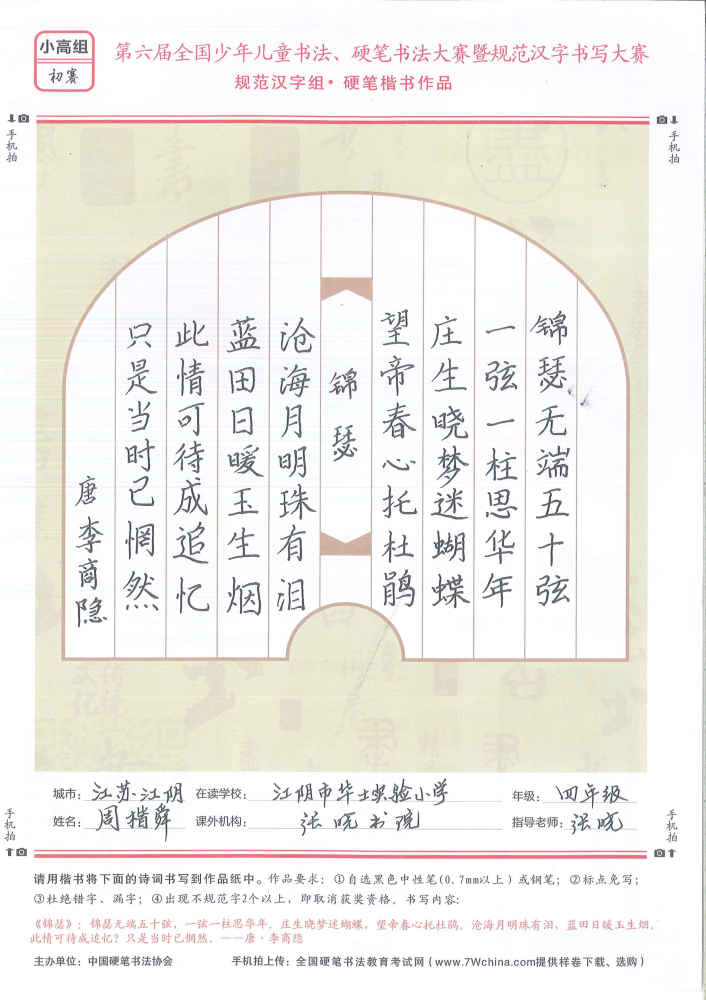 小高组
初赛
第六届全国少年儿童书法、硬笔书法大赛暨规范汉字书写大赛
规范汉字组·硬笔楷书作品
手机拍
手机拍
锦瑟无端五十弦
一弦一柱思华年
庄生晓梦迷蝴蝶
望帝春心托杜鹃
锦瑟
沧海月明珠有泪
蓝田日暖玉生烟
此情可待成追忆
只是当时已惘然
唐李商隐
城市：江苏江阴 在读学校：江阴市华士实验小学 年级：四年级
姓名：周楷舜 课外机构：张晓书院 指导老师：张晓
手机拍
手机拍
请用楷书将下面的诗词书写到作品纸中。作品要求：①自选黑色中性笔(0.7mm以上）或钢笔；②标点免写；
③杜绝错字、漏字；④出现不规范字2个以上，即取消获奖资格。书写内容：
《锦瑟》：锦瑟无端五十弦，一弦一柱思华年。庄生晓梦迷蝴蝶，望帝春心托杜鹃。沧海月明珠有泪，蓝田日暖玉生烟。
此情可待成追忆？只是当时已惘然。——唐·李商隐
主办单位：中国硬笔书法协会 手机拍上传：全国硬笔书法教育考试网（www.7Wchina.com提供样卷下载、选购）